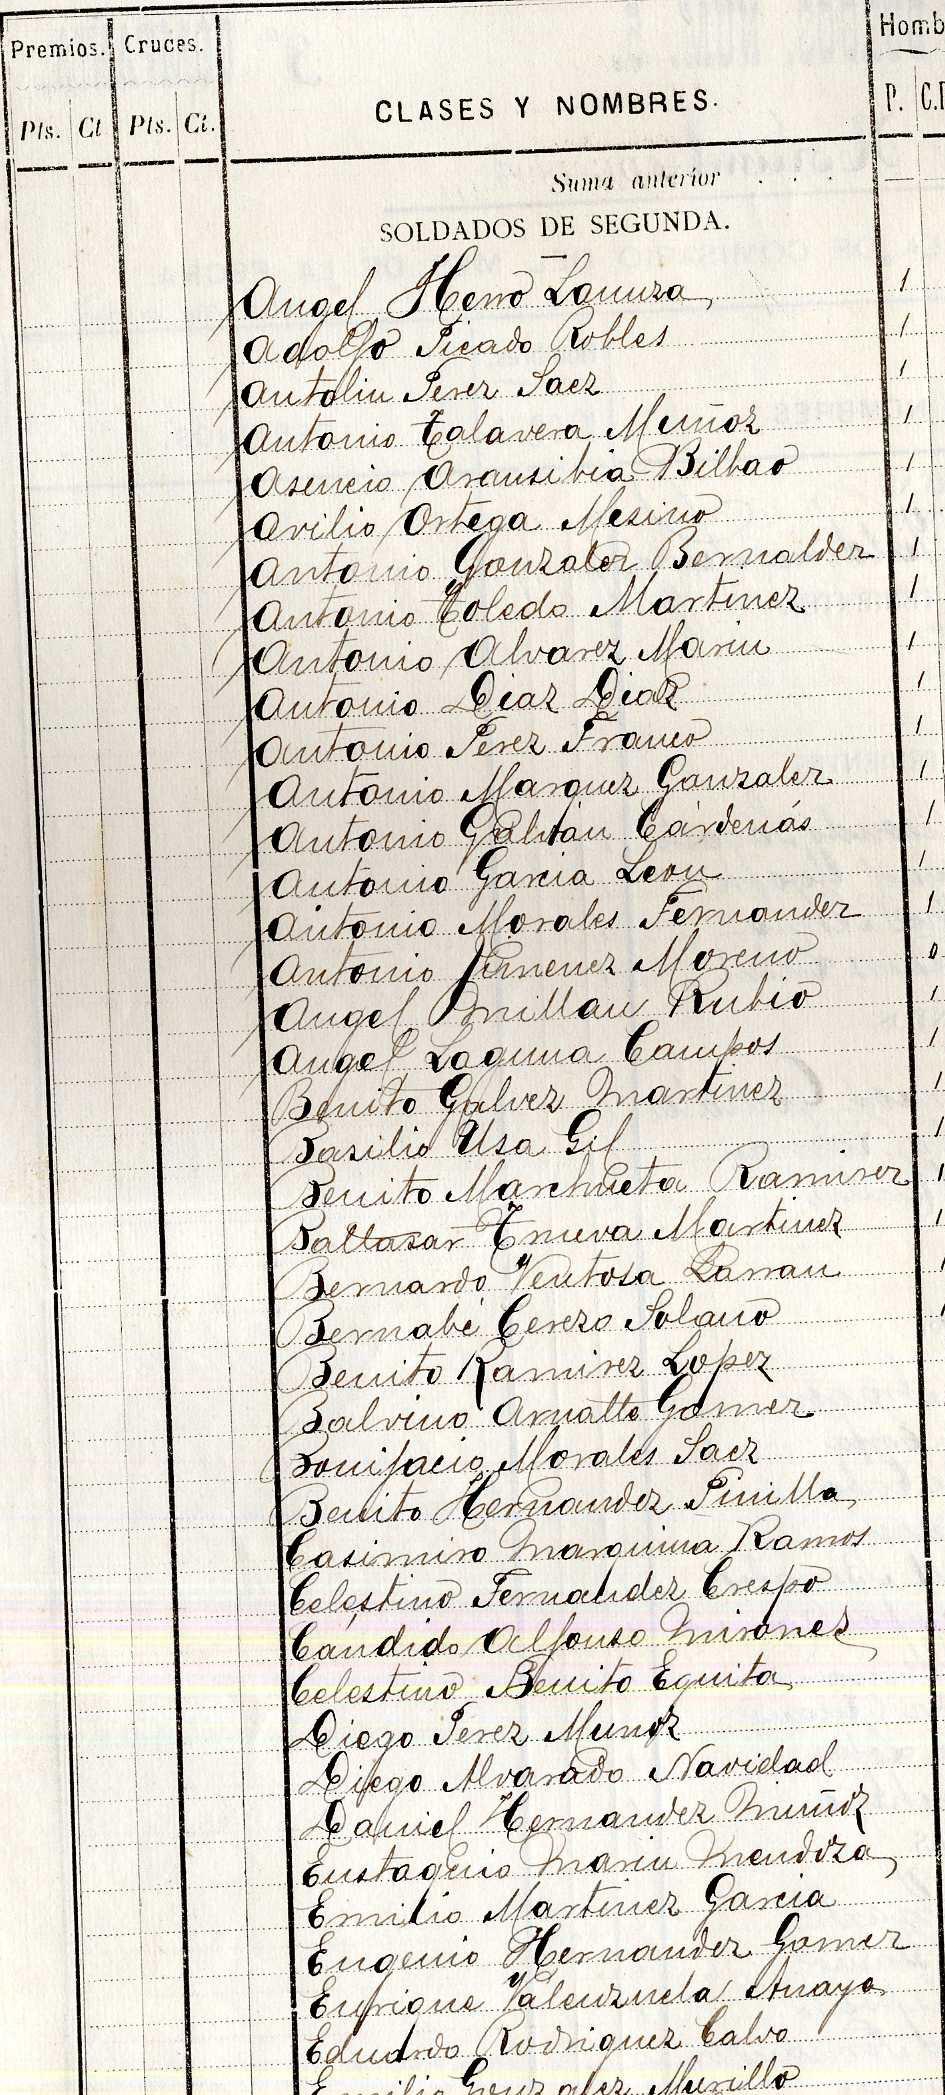 Premios. Cruces. Homb
CLASES Y NOMBRES.
Pts. Ct Pts. Ct. P. C.
Suma anterior . . .
SOLDADOS DE SEGUNDA.
Angel Herro Lanuza 1
Adolfo Picado Robles 1
Antolin Perez Saez 1
Antonio Talavera Muñoz 1
Asencio Aransibia Bilbao 1
Avilio Ortega Mesino 1
Antonio Gonzalez Bernaldez 1
Antonio Toledo Martinez 1
Antonio Alvarez Marin 1
Antonio Diaz Diaz 1
Antonio Perez Franco 1
Antonio Marquez Gonzalez 1
Antonio Galvan Cárdenás 1
Antonio Garcia Leon 1
Antonio Morales Fernandez 1
Antonio Jimenez Moreno 0
Angel Millan Rubio 1
Angel Laguna Campos 1
Benito Galvez Martinez 1
Basilio Usa Gil 1
Benito Marchueta Ramirez 1
Baltasar Martinez 1
Bernardo Ventosa Larrau 1
Bernabé Cerezo Solano 1
Benito Ramirez Lopez
Balvino Arnalte Gomez
Bonifacio Morales Saez
Benito Hernandez Pinilla
Casimiro Marquina Ramos
Celestino Fernandez Crespo
Cándido Alfonso Mirones
Celestino Benito Equita
Diego Perez Munoz
Diego Alvarado Navidad
Daniel Hernandez Muñoz
Eustaquio Marin Mendoza
Emilio Martinez Garcia
Eugenio Hernandez Gomez
Enrique Valenzuela Anaya
Eduardo Rodriguez Calvo
Emilio Gonzalez Murillo